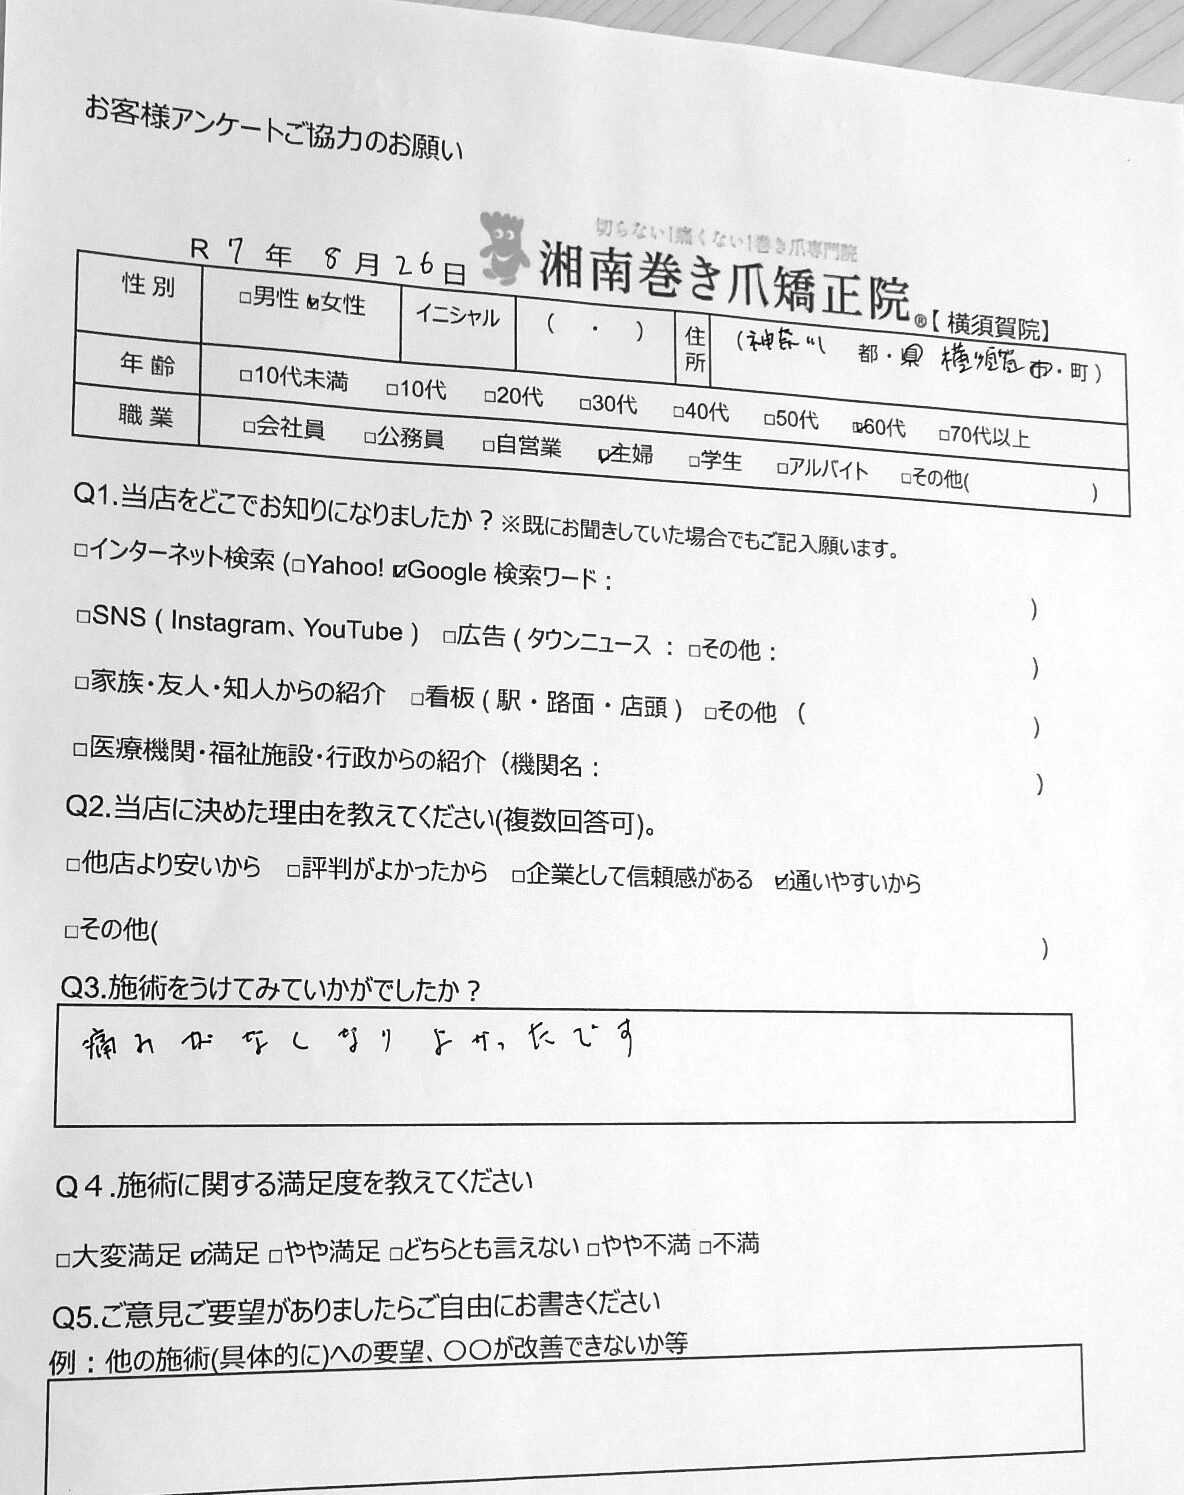 お客様アンケートご協力のお願い
切らない!痛くない!巻き爪専門院
湘南巻き爪矯正院®【横須賀院】
R 7 年 8 月 26 日
性別 □男性 ☑女性 イニシャル ( ・ ) 住所 (神奈川 都・県 横須賀 市・町)
年齢 □10代未満 □10代 □20代 □30代 □40代 □50代 ☑60代 □70代以上
職業 □会社員 □公務員 □自営業 ☑主婦 □学生 □アルバイト □その他( )
Q1.当店をどこでお知りになりましたか?※既にお聞きしていた場合でもご記入願います。
□インターネット検索 (□Yahoo! ☑Google 検索ワード: )
□SNS ( Instagram、YouTube ) □広告 ( タウンニュース : □その他: )
□家族・友人・知人からの紹介 □看板 ( 駅・路面・店頭 ) □その他 ( )
□医療機関・福祉施設・行政からの紹介 (機関名: )
Q2.当店に決めた理由を教えてください(複数回答可)。
□他店より安いから □評判がよかったから □企業として信頼感がある ☑通いやすいから
□その他( )
Q3.施術をうけてみていかがでしたか?
痛みがなくなりよかったです
Q4.施術に関する満足度を教えてください
□大変満足 ☑満足 □やや満足 □どちらとも言えない □やや不満 □不満
Q5.ご意見ご要望がありましたらご自由にお書きください
例:他の施術(具体的に)への要望、〇〇が改善できないか等